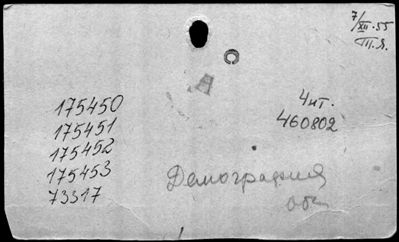 7/XII.55
Ш.Я.
175450
175451
175452
175453
73317
Чит.
460802
Демография